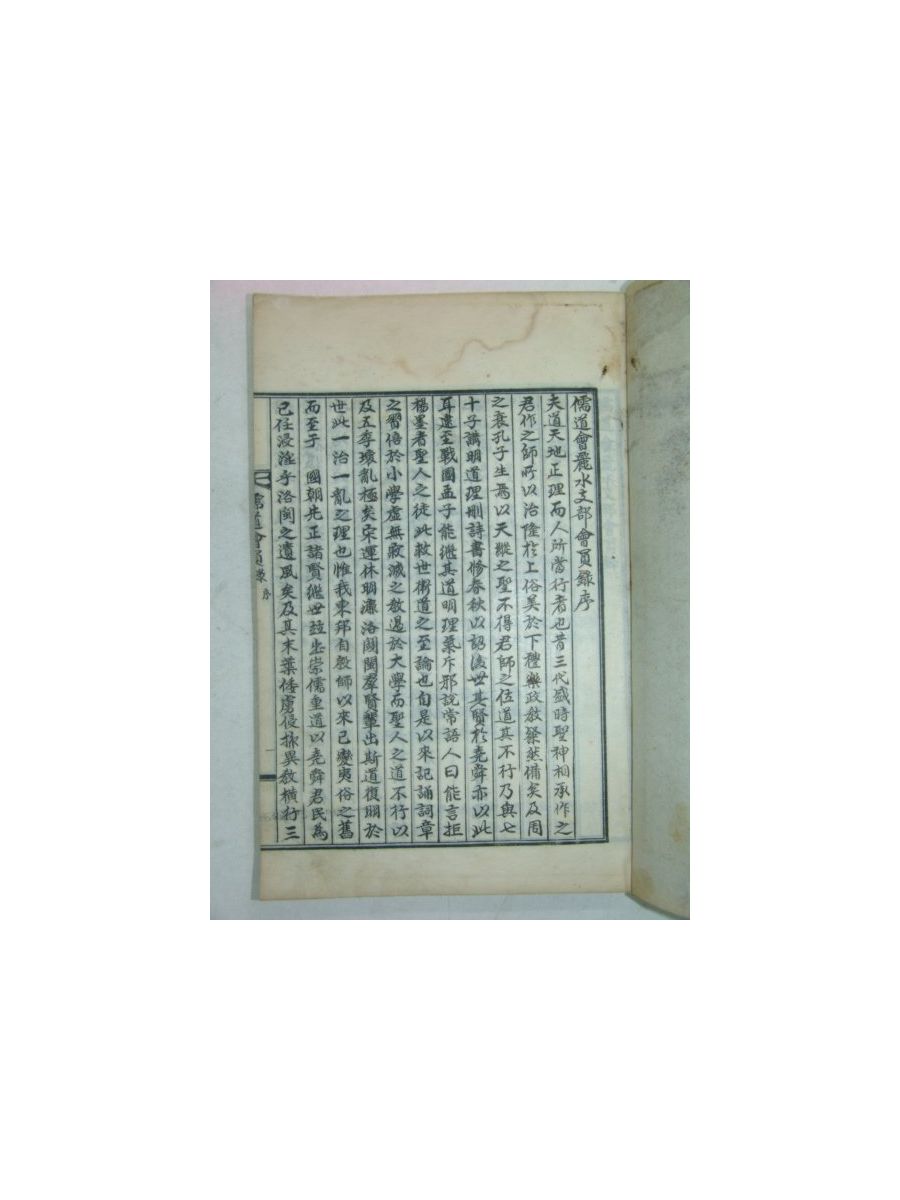 儒道會麗水支部會員錄序
夫道天地正理而人所當行者也昔三代盛時聖神相承作之
君作之師所以治隆於上俗美於下禮樂政敎粲然備矣及周
之衰孔子生焉以天縱之聖不得君師之位道其不行乃與七
十子講明道理刪詩書修春秋以詔後世其賢於堯舜亦以此
耳逮至戰國孟子能繼其道明理氣斥邪說常語人曰能言拒
楊墨者聖人之徒此救世衛道之至論也自是以來記誦詞章
之習倍於小學虛無寂滅之敎過於大學而聖人之道不行以
及五季壞亂極矣宋運休明濂洛關閩羣賢輩出斯道復明於
世此一治一亂之理也惟我東邦自殷師以來已變夷俗之舊
而至于 國朝先正諸賢繼世玆出崇儒重道以堯舜君民爲
己任浸淫乎洛閩之遺風矣及其末葉倭虜侵掠異敎橫行三
儒道會員錄 序 一